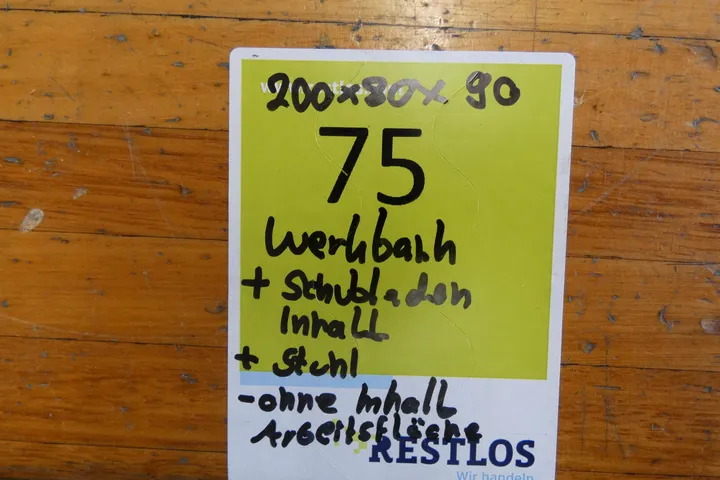 200x80x90
75
Werkbank
+ Schubladen
Inhalt
+ Stuhl
- ohne Inhalt
Arbeitsfläche
RESTLOS
Wir handeln